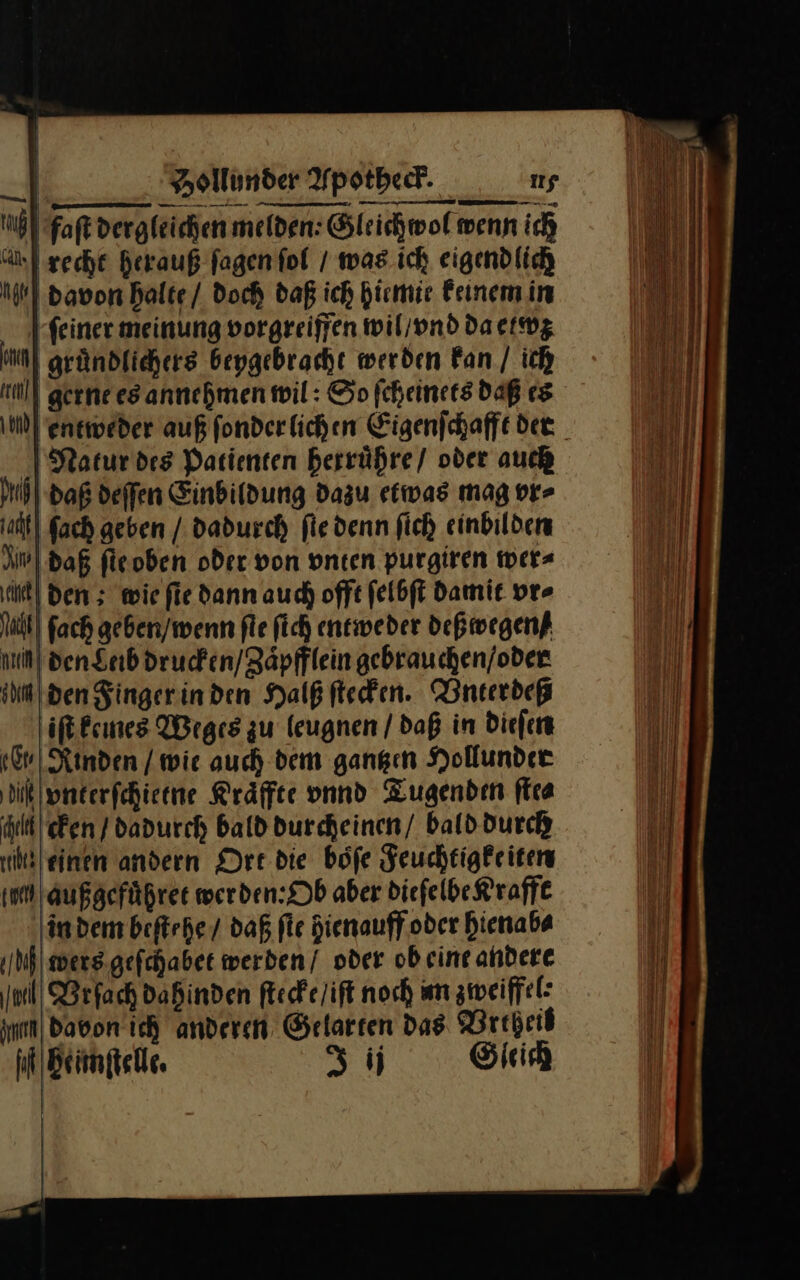 Hollunder Apotheck. 115
fast dergleichen melden: Gleichwol wenn ich
recht herauß sagen sol / was ich eigendlich
davon halte / doch daß ich hiemit keinem in
seiner meinung vorgreiffen wil / vnd da etwz
gründlichers beygebracht werden kan / ich
gerne es annehmen wil: So scheinets daß es
entweder auß sonderlichen Eigenschafft der
Natur des Patienten herrühre / oder auch
daß dessen Einbildung dazu etwas mag vr⸗
sach geben / dadurch sie denn sich einbilden
daß sie oben oder von vnten purgiren wer⸗
den; wie sie dann auch offt selbst damit vr⸗
sach geben / wenn sie sich entweder deßwegen /
den Leib drucken / Zäpfflein gebrauchen / oder
den Finger in den Halß stecken. Vnterdeß
ist keines Weges zu leugnen / daß in diesen
Rinden / wie auch dem gantzen Hollunder
vnterschietne Kräffte vnnd Tugenden ste⸗
cken / dadurch bald durch einen / bald durch
einen andern Ort die böse Feuchtigkeiten
außgeführet werden: Ob aber dieselbe Krafft
in dem bestehe / daß sie hienauff oder hienab⸗
wers geschabet werden / oder ob eine andere
Vrsach dahinden stecke / ist noch im zweiffel:
davon ich anderen Gelarten das Vrtheil
heimstelle. J ij Gleich